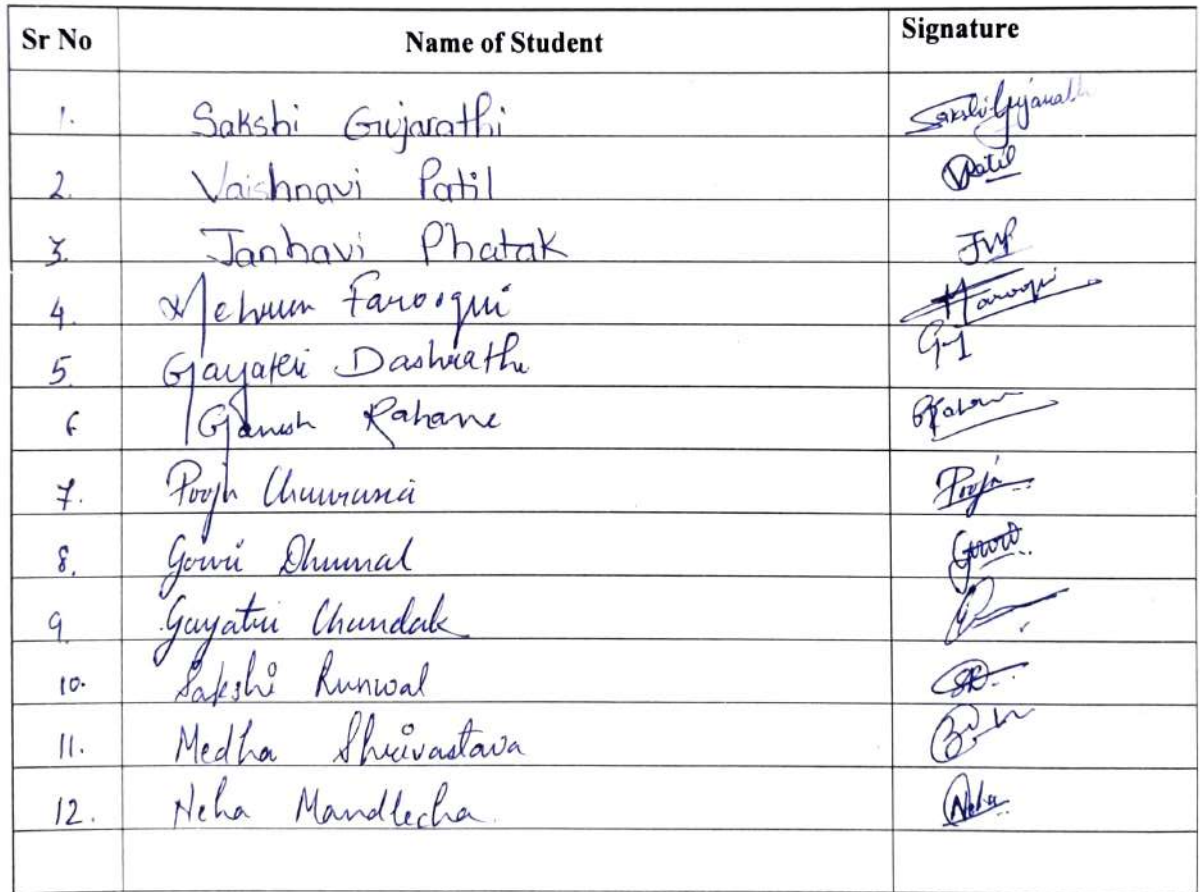 Sr No Name of Student Signature
1. Sakshi Gujarathi Sakshi Gujarathi
2. Vaishnavi Patil Patil
3. Janhavi Phatak JVP
4. Farooqui Farooqui
5. Gayatri Dashrathe
6 Ganesh Rahane
7. Pooja Chaurasia Pooja
8. Gowri Dhumal
9 Gayatri Chandak
10. Sakshi Runwal
11. Medha Shrivastava
12. Neha Mandlecha Neha